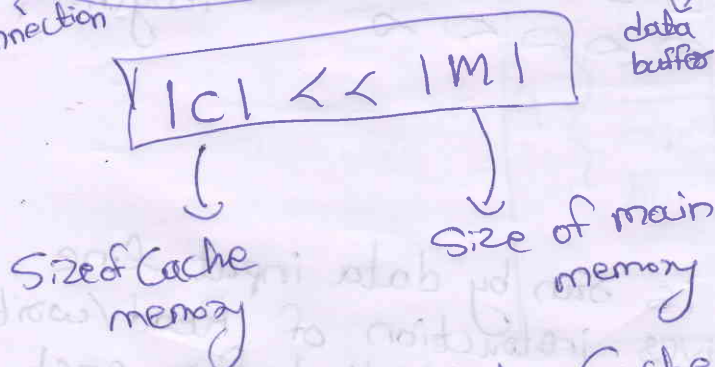 data
buffer
|C| << |M|
Size of Cache
memory
Size of main
memory
Cache